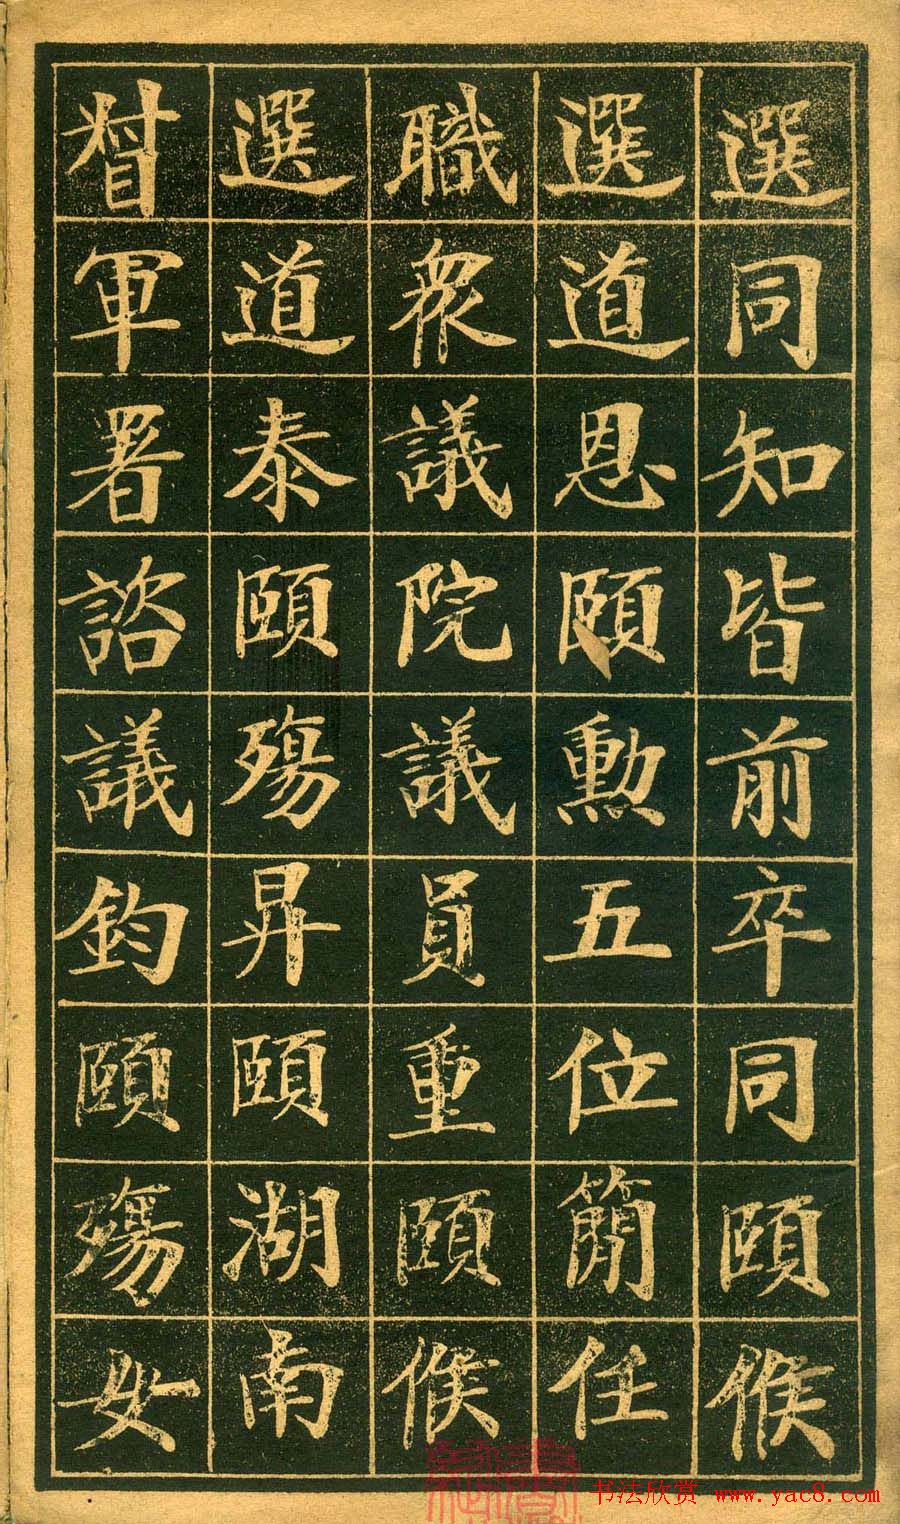 選同知皆前卒同頤候
選道恩頤勲五位簡任
職衆議院議員重頤候
選道泰頤殤昇頤湖南
督軍署諮議鈞頤殤女
书法欣赏 www.yac8.com